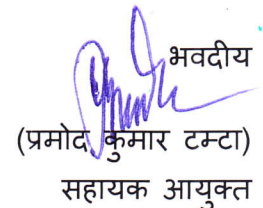 भवदीय
(प्रमोद कुमार टम्टा)
सहायक आयुक्त